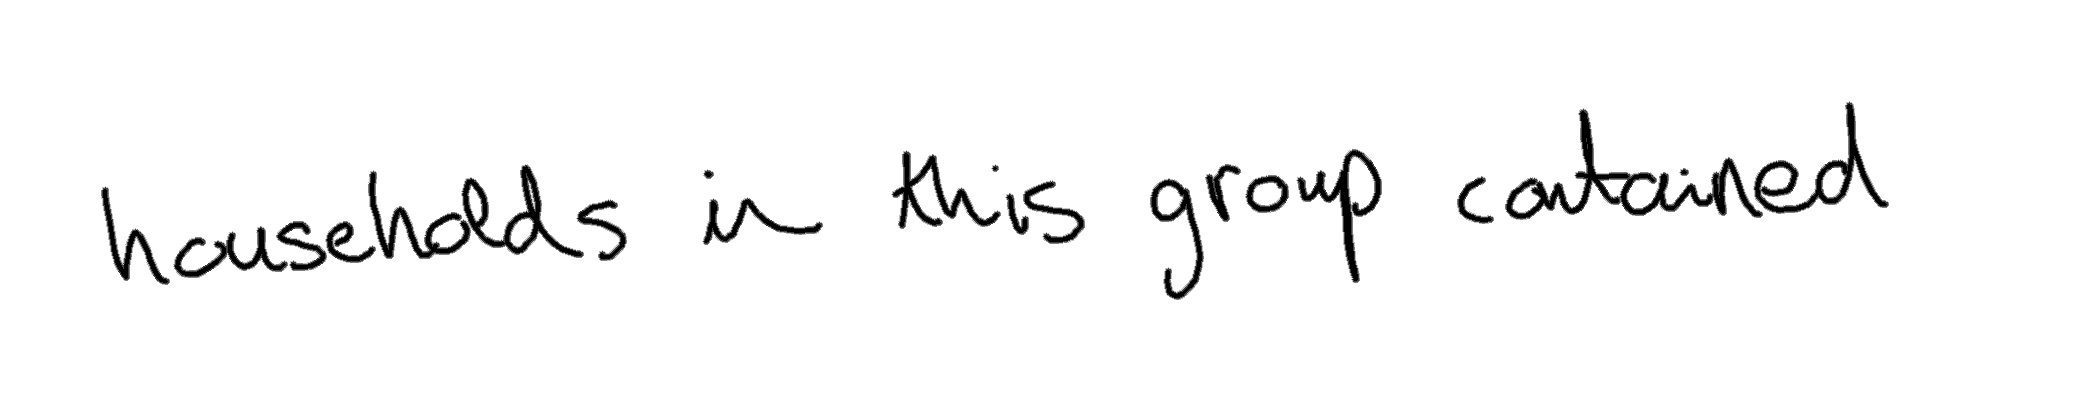 households in this group contained